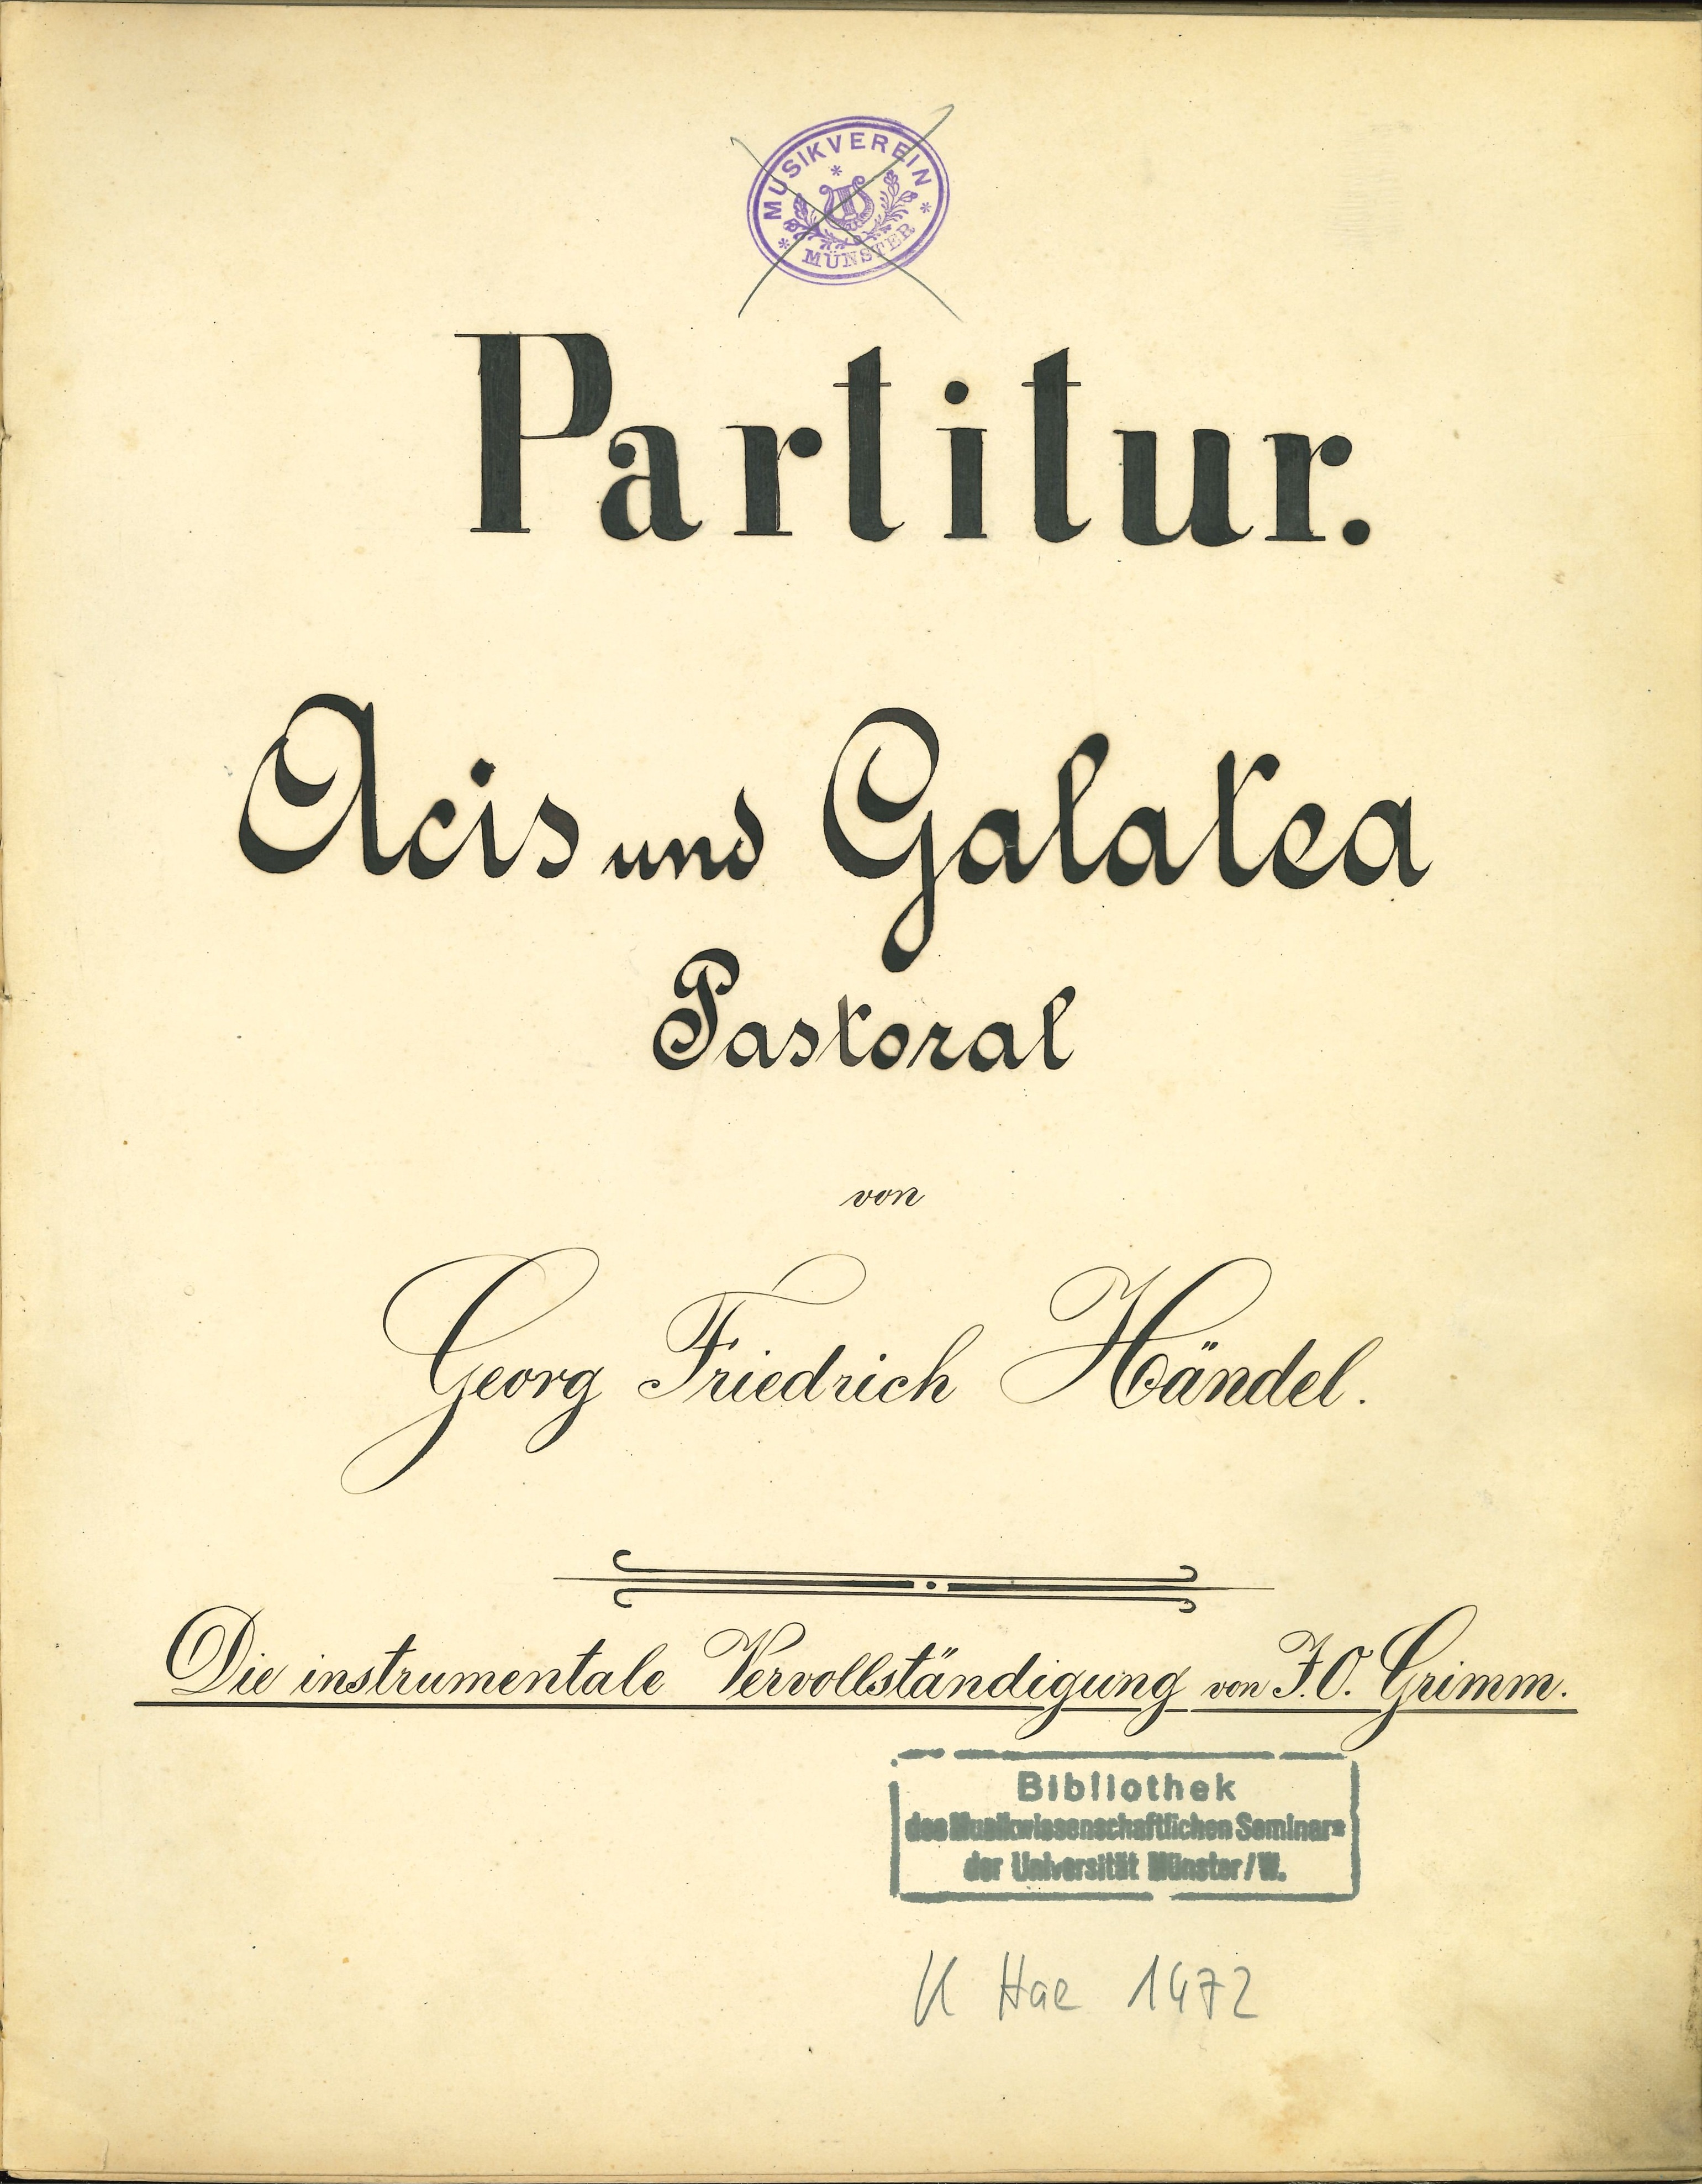 MUSIKVEREIN
MÜNSTER
Partitur.
Acis und Galatea
Pastoral
von
Georg Friedrich Händel.
Die instrumentale Vervollständigung von J. O. Grimm.
Bibliothek
des Musikwissenschaftlichen Seminars
der Universität Münster/W.
K Hae 1472